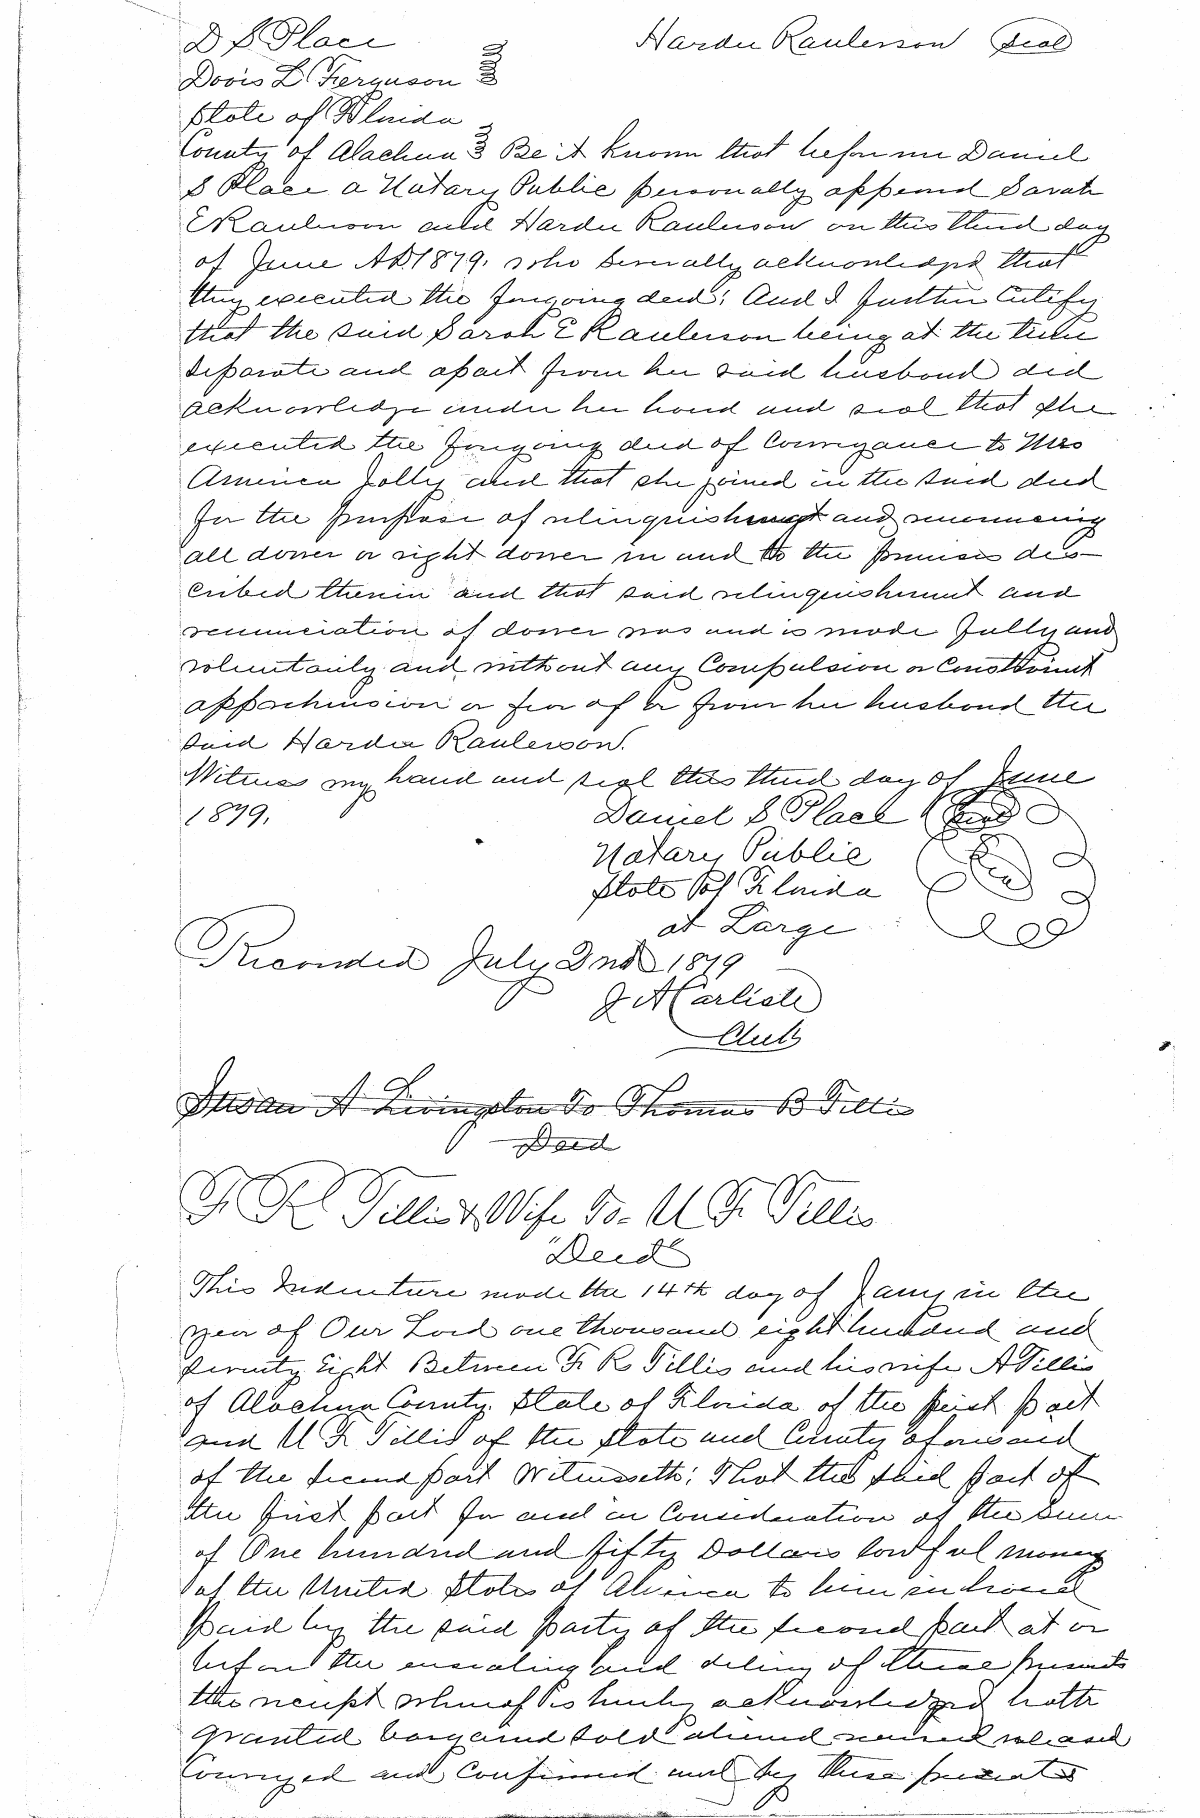 D S Place Hardee Raulerson Seal
Dovis L Ferguson
State of Florida
County of Alachua Be it known that before me Daniel
S Place a Notary Public personally appeared Sarah
E Raulerson and Hardee Raulerson on this third day
of June AD 1879. who severally acknowledged that
they executed the foregoing deed; And I further Certify
that the said Sarah E Raulerson being at the time
separate and apart from her said husband did
acknowledge under her hand and seal that she
executed the foregoing deed of Conveyance to Mrs
America Jolly and that she joined in the said deed
for the purpose of relinquishment and renouncing
all dower or right dower in and to the premises des-
cribed therein and that said relinquishment and
renunciation of dower was and is made fully and
voluntarily and without any Compulsion or Constraint
apprehension or fear of or from her husband the
said Hardee Raulerson.
Witness my hand and seal this third day of June
1879.
Daniel S Place Seal
Notary Public
State of Florida
at Large
Recorded July 2nd 1879
J A Carlisle
Clerk
Susan A Livingston To Thomas B Tillis
Deed
F R Tillis & Wife To- U F Tillis
"Deed"
This Indenture made the 14th day of Jany in the
year of Our Lord one thousand eight hundred and
seventy Eight Between F R Tillis and his wife A Tillis
of Alachua County. State of Florida of the first part
and U F Tillis of the State and County aforesaid
of the second part Witnesseth; That the said part of
the first part for and in Consideration of the Sum
of One hundred and fifty Dollars lawful money
of the United States of America to him in hand
paid by the said party of the second part at or
before the ensealing and delivery of these presents
the receipt whereof is hereby acknowledged hath
granted bargained sold aliened remised released
Conveyed and Confirmed and by these presents